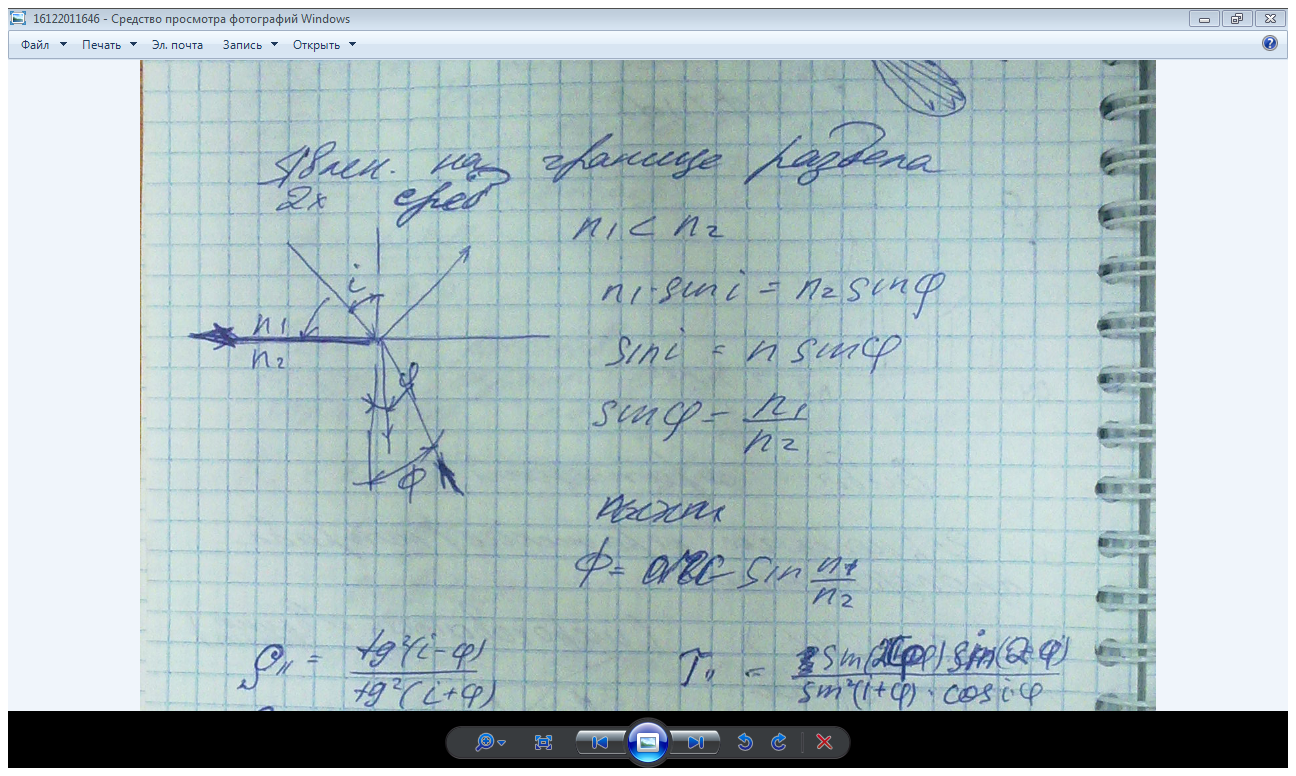 16122011646 - Средство просмотра фотографий Windows
Файл Печать Эл. почта Запись Открыть
Явлен. на границе раздела
2х сред
n₁ < n₂
i
n₁·sin i = n₂ sin φ
n₁
n₂
sin i = n sin φ
φ
sin φ = n₁/n₂
ϕ
ϕ = arc sin n₁/n₂
ρ〃 = tg²(i-φ)/tg²(i+φ)